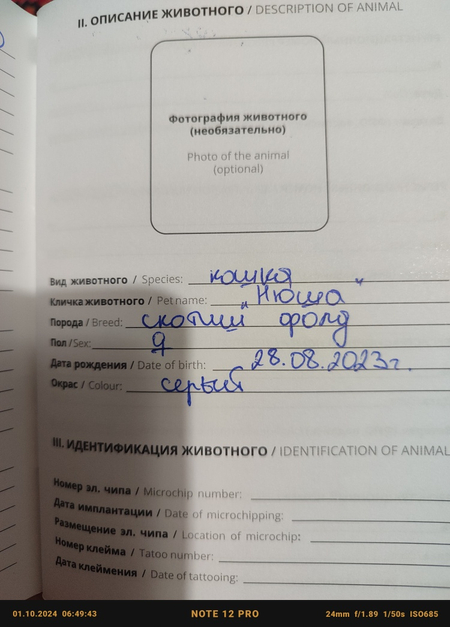 II. ОПИСАНИЕ ЖИВОТНОГО / DESCRIPTION OF ANIMAL
Фотография животного
(необязательно)
Photo of the animal
(optional)
Вид животного / Species: кошка
Кличка животного / Pet name: „Нюша“
Порода / Breed: скотиш фолд
Пол / Sex: ♀
Дата рождения / Date of birth: 28.08.2023г.
Окрас / Colour: серый
III. ИДЕНТИФИКАЦИЯ ЖИВОТНОГО / IDENTIFICATION OF ANIMAL
Номер эл. чипа / Microchip number:
Дата имплантации / Date of microchipping:
Размещение эл. чипа / Location of microchip:
Номер клейма / Tatoo number:
Дата клеймения / Date of tattooing:
01.10.2024 06:49:43 NOTE 12 PRO 24mm f/1.89 1/50s ISO685